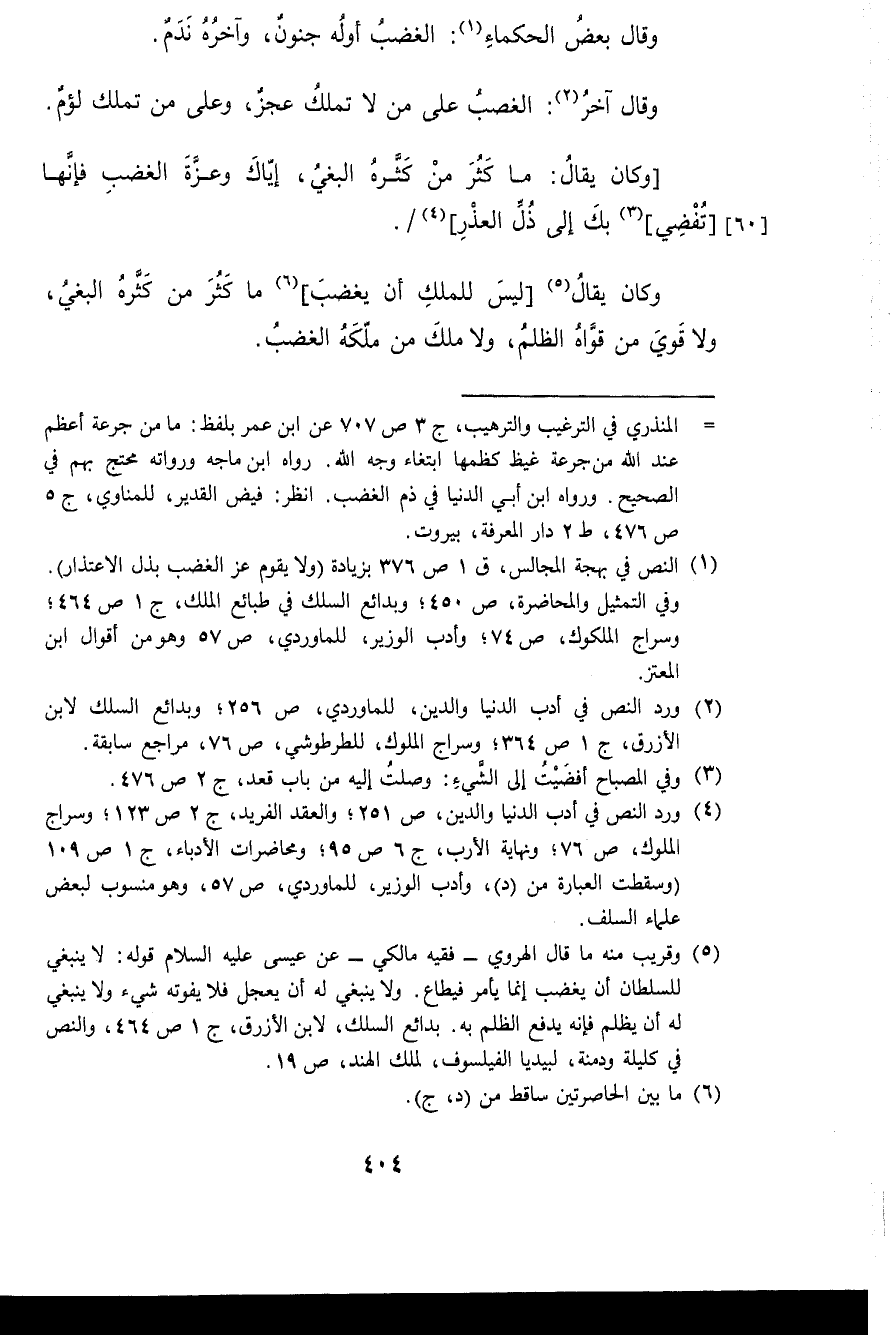 وقال بعضُ الحكماءِ(١): الغضبُ أولُه جنونٌ، وآخرُهُ نَدَمٌ.
وقال آخرُ(٢): الغصبُ على من لا تملكُ عجزٌ، وعلى من تملك لؤمٌ.
[وكان يقالُ: ما كَثُرَ منْ كَثَّرهُ البغيُ، إيّاكَ وعزَّةَ الغضبِ فإنَّها
[٦٠] [تُفْضِي](٣) بكَ إلى ذُلِّ العذْرِ](٤)/.
وكان يقالُ(٥) [ليسَ للملكِ أن يغضبَ](٦) ما كَثُرَ من كَثَّرهُ البغيُ،
ولا قَويَ من قوَّاهُ الظلمُ، ولا ملكَ من ملّكَهُ الغضبُ.
= المنذري في الترغيب والترهيب، ج ٣ ص ٧٠٧ عن ابن عمر بلفظ: ما من جرعة أعظم
عند الله من جرعة غيظ كظمها ابتغاء وجه الله. رواه ابن ماجه ورواته محتج بهم في
الصحيح. ورواه ابن أبي الدنيا في ذم الغضب. انظر: فيض القدير، للمناوي، ج ٥
ص ٤٧٦، ط ٢ دار المعرفة، بيروت.
(١) النص في بهجة المجالس، ق ١ ص ٣٧٦ بزيادة (ولا يقوم عز الغضب بذل الاعتذار).
وفي التمثيل والمحاضرة، ص ٤٥٠؛ وبدائع السلك في طبائع الملك، ج ١ ص ٤٦٤؛
وسراج الملكوك، ص ٧٤؛ وأدب الوزير، للماوردي، ص ٥٧ وهو من أقوال ابن
المعتز.
(٢) ورد النص في أدب الدنيا والدين، للماوردي، ص ٢٥٦؛ وبدائع السلك لابن
الأزرق، ج ١ ص ٣٦٤؛ وسراج الملوك، للطرطوشي، ص ٧٦، مراجع سابقة.
(٣) وفي المصباح أفضَيْتُ إلى الشَّيءِ: وصلتُ إليه من باب قعد، ج ٢ ص ٤٧٦.
(٤) ورد النص في أدب الدنيا والدين، ص ٢٥١؛ والعقد الفريد، ج ٢ ص ١٢٣؛ وسراج
الملوك، ص ٧٦؛ ونهاية الأرب، ج ٦ ص ٩٥؛ ومحاضرات الأدباء، ج ١ ص ١٠٩
(وسقطت العبارة من (د)، وأدب الوزير، للماوردي، ص ٥٧، وهو منسوب لبعض
علماء السلف.
(٥) وقريب منه ما قال الهروي ــ فقيه مالكي ــ عن عيسى عليه السلام قوله: لا ينبغي
للسلطان أن يغضب إنما يأمر فيطاع. ولا ينبغي له أن يعجل فلا يفوته شيء ولا ينبغي
له أن يظلم فإنه يدفع الظلم به. بدائع السلك، لابن الأزرق، ج ١ ص ٤٦٤، والنص
في كليلة ودمنة، لبيديا الفيلسوف، لملك الهند، ص ١٩.
(٦) ما بين الحاصرتين ساقط من (د، ج).
٤٠٤